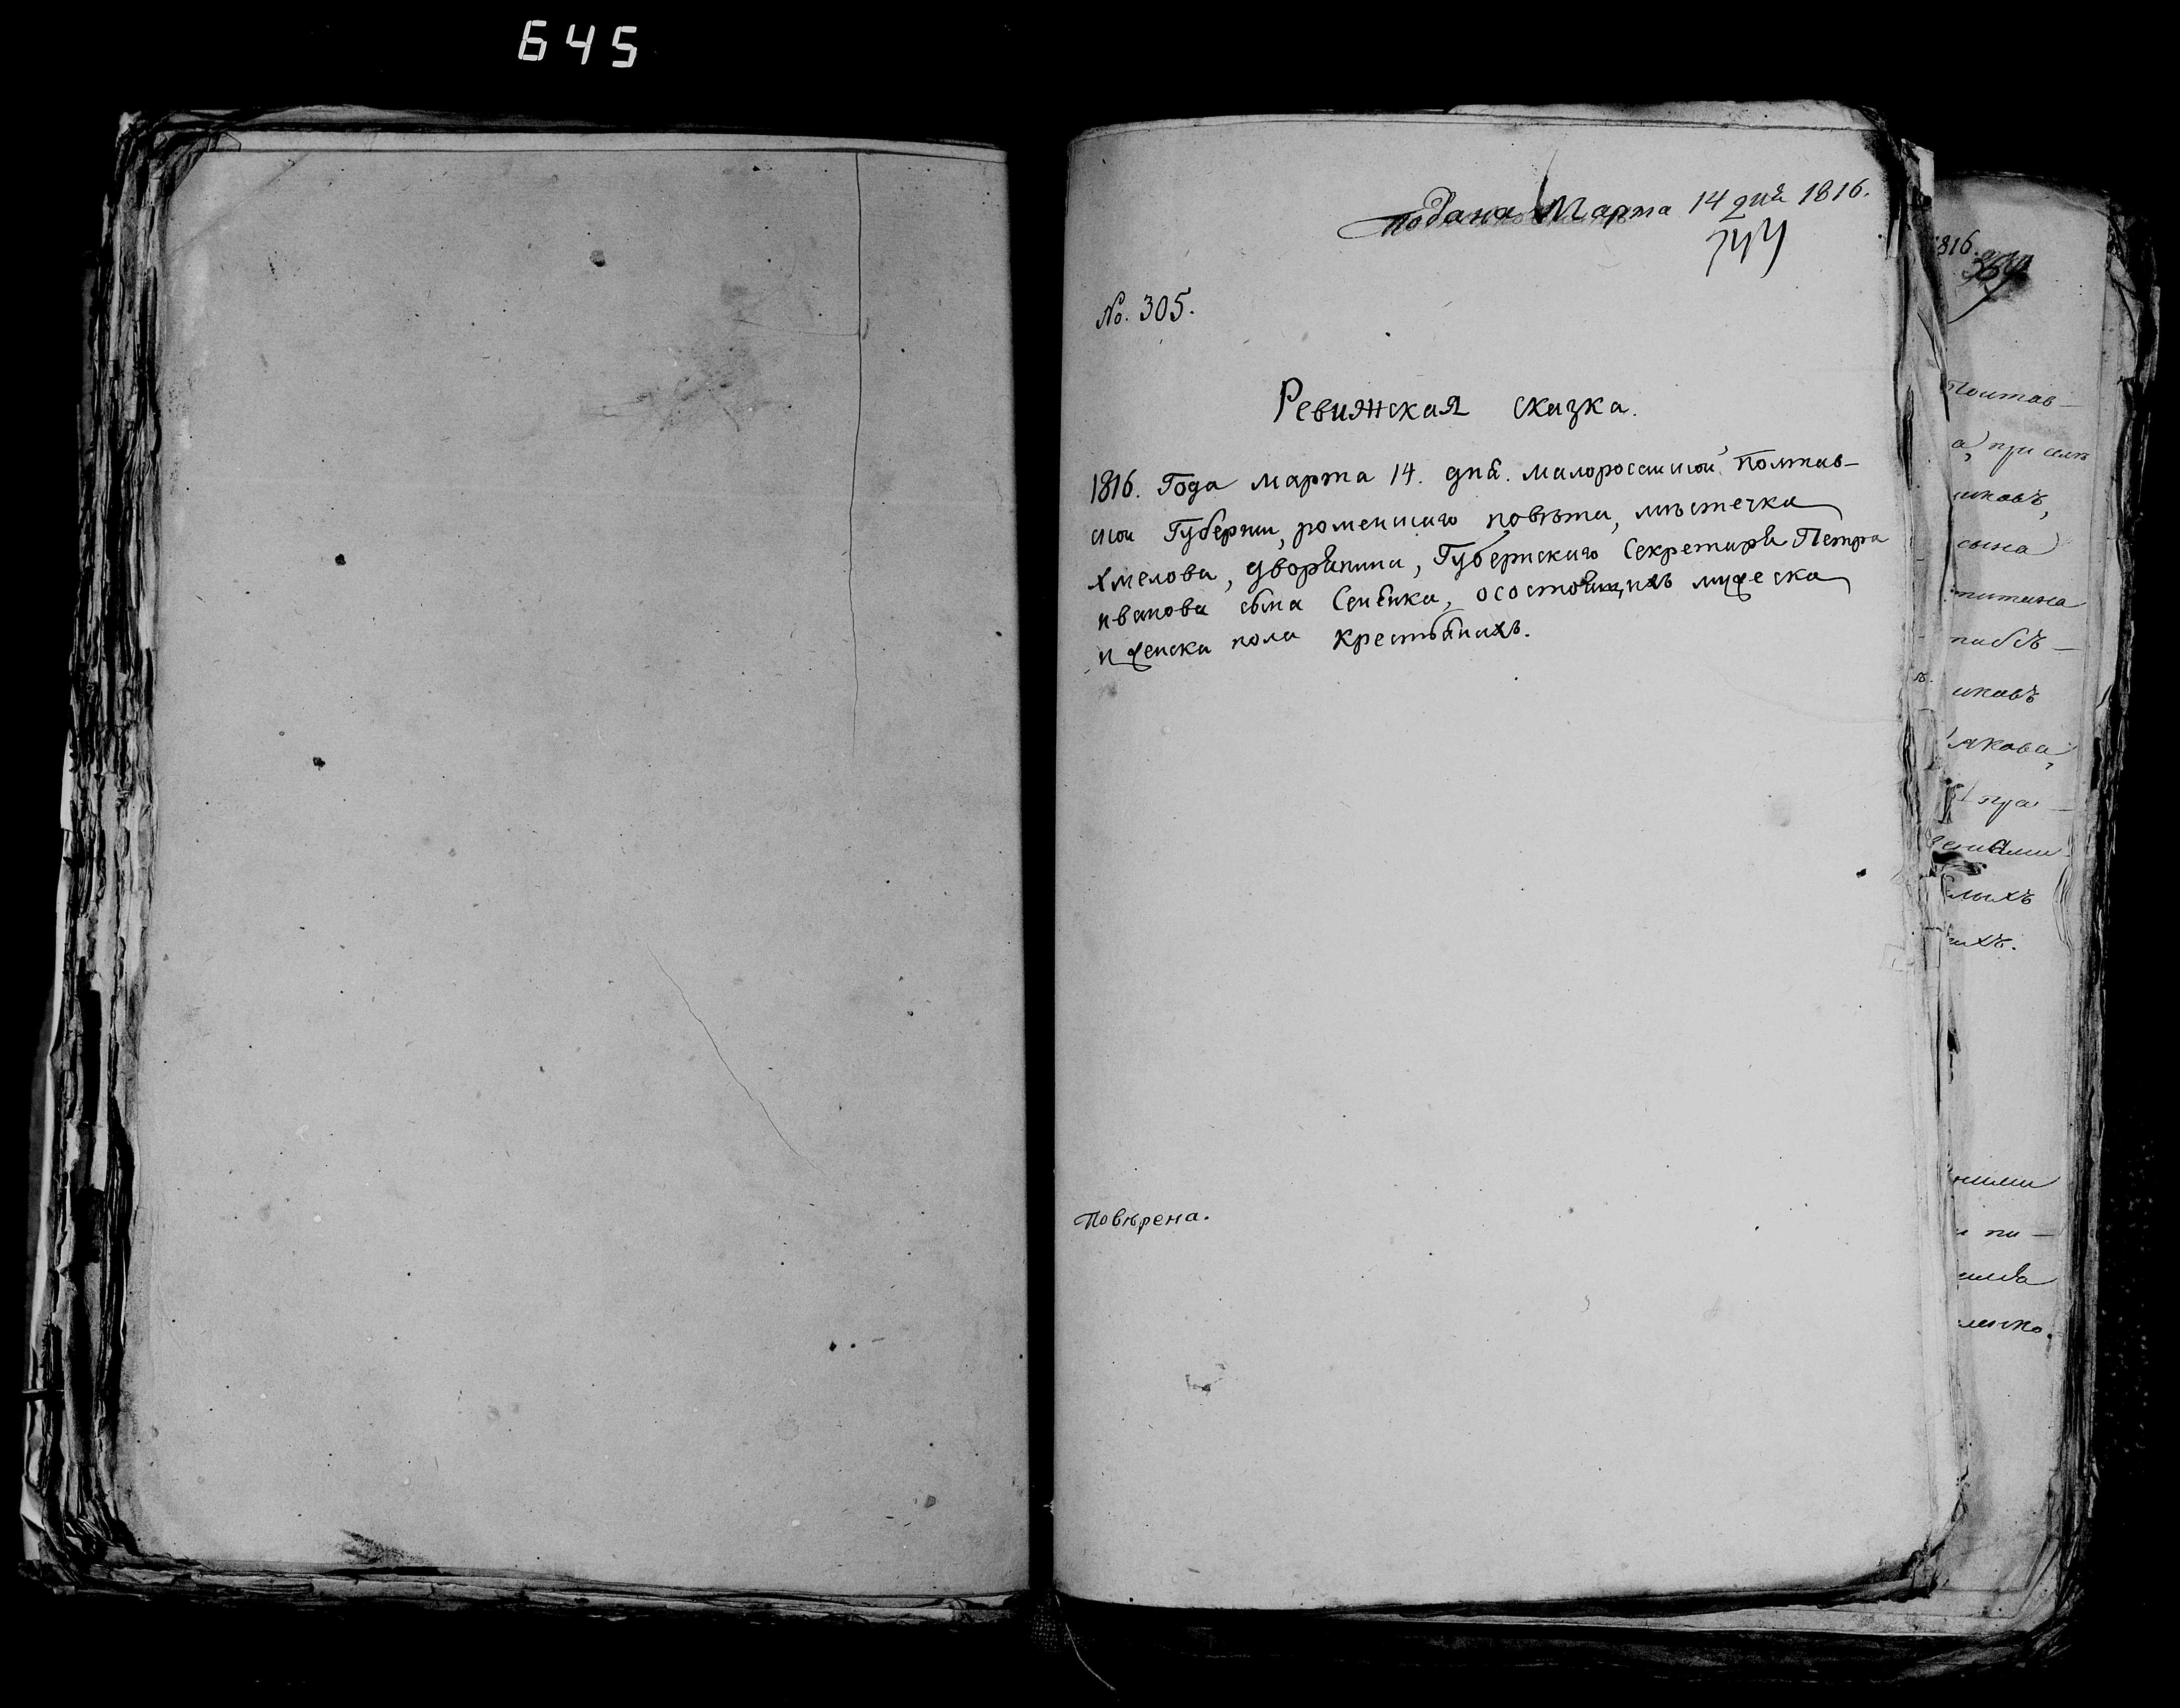 645
Подана Марта 14 дня 1816.
No. 305.
Ревижская сказка.
1816. Года марта 14. дня. малороссииской Полтав-
ской Губернии, роменского повѣта, мѣстечка
хмелова, дворянина, Губернского Секретаря Петра
иванова сына Сенька, осостоящихъ мужеска
и женска пола крестьянахъ.
Повѣрена.
1816.
Полтав-
а, при селѣ
иковъ,
сына
иковъ
якова,